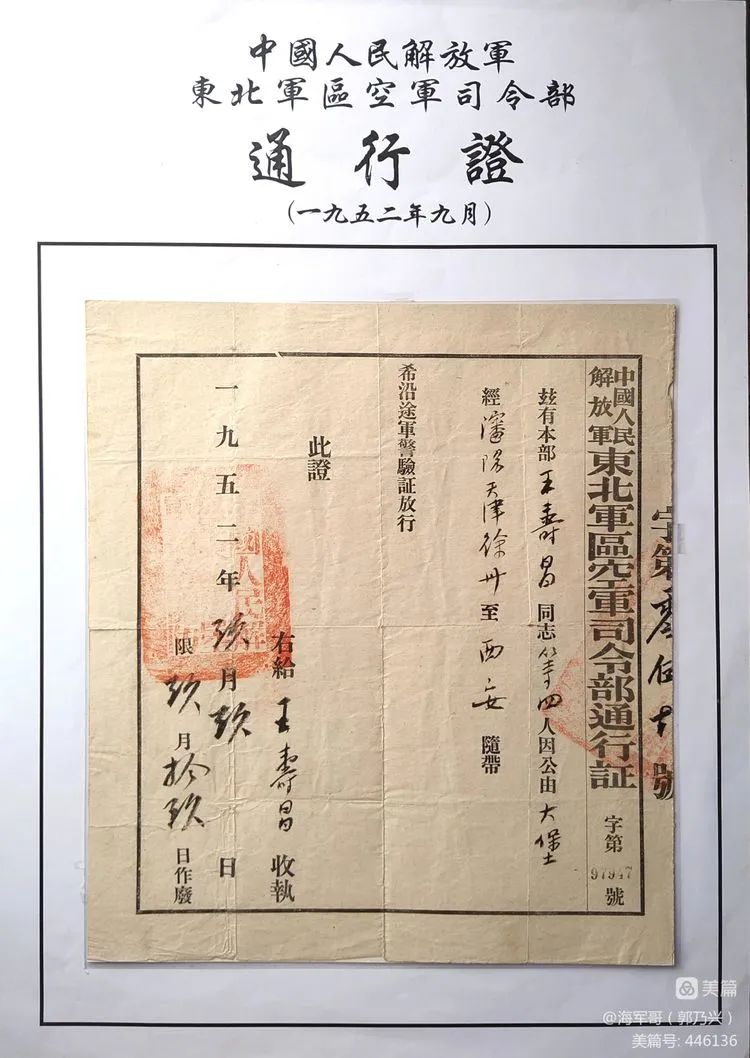 中國人民解放軍
東北軍區空軍司令部
通行證
（一九五二年九月）
中國人民解放軍東北軍區空軍司令部通行証 字第97947號
字第 號
玆有本部王壽昌同志等四人因公由大保土
經瀋陽天津徐州至西安隨帶
希沿途軍警驗証放行
此證
右給王壽昌收執
一九五二年玖月玖日
限玖月拾玖日作廢
美篇
@海军哥（郭乃兴）
美篇号: 446136